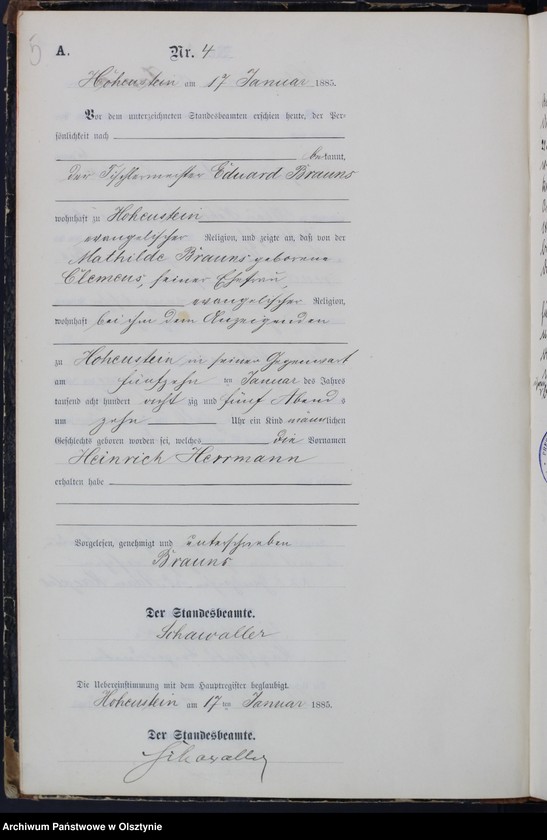 5
A. Nr. 4
Hohenstein am 17 Januar 1885.
Vor dem unterzeichneten Standesbeamten erschien heute, der Per-
sönlichkeit nach
bekannt,
der Tischlermeister Eduard Brauns
wohnhaft zu Hohenstein
evangelischer Religion, und zeigte an, daß von der
Mathilde Brauns geborene
Clemens, seiner Ehefrau,
evangelischer Religion,
wohnhaft bei ihm dem Anzeigenden
zu Hohenstein in seiner Gegenwart
am fünfzehn ten Januar des Jahres
tausend acht hundert achtzig und fünf Abends
um zehn Uhr ein Kind männlichen
Geschlechts geboren worden sei, welches die Vornamen
Heinrich Herrmann
erhalten habe
Vorgelesen, genehmigt und unterschrieben
Brauns
Der Standesbeamte.
Schawaller
Die Uebereinstimmung mit dem Hauptregister beglaubigt.
Hohenstein am 17 ten Januar 1885.
Der Standesbeamte.
Schawaller
Archiwum Państwowe w Olsztynie